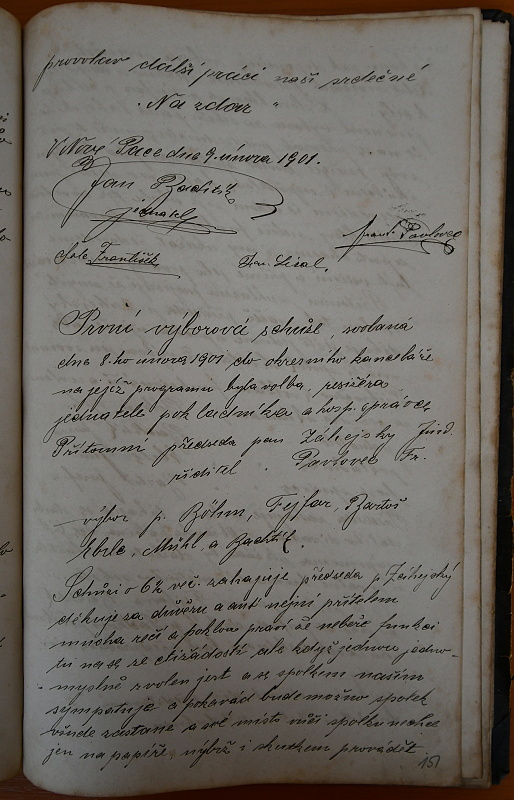 provolav další práci naší srdečné
"Na zdar"
V Nové Pace dne 9. února 1901.
Jan
jednatel
František
Pavlovec
První výborová schůze, svolaná
dne 8.ho února 1901 do okresního kanceláře
na jejíž programu byla volba, resižéra
jednatele pokladníka a hosp. správce,
Přítomni předseda pan Záhejsky Jind.
ředitel Pavlovec Fr.
výbor p. Böhm, Fejfar, Bartoš
Ebrle, Mühl, a
Schůzi o 6½ več. zahajuje předseda p. Záhejský
děkuje za důvěru a není přítelem
mnoha řečí a poklon praví že nebéře funkci
tu na se ze ctižádosti ale když jednou jedno-
myslně zvolen jest a se spolkem naším
sympatuje a pokavád bude možno spolek
všude zastane a své místo vůči spolku nechce
jen na papíře, nýbrž i skutkem prováděti
151